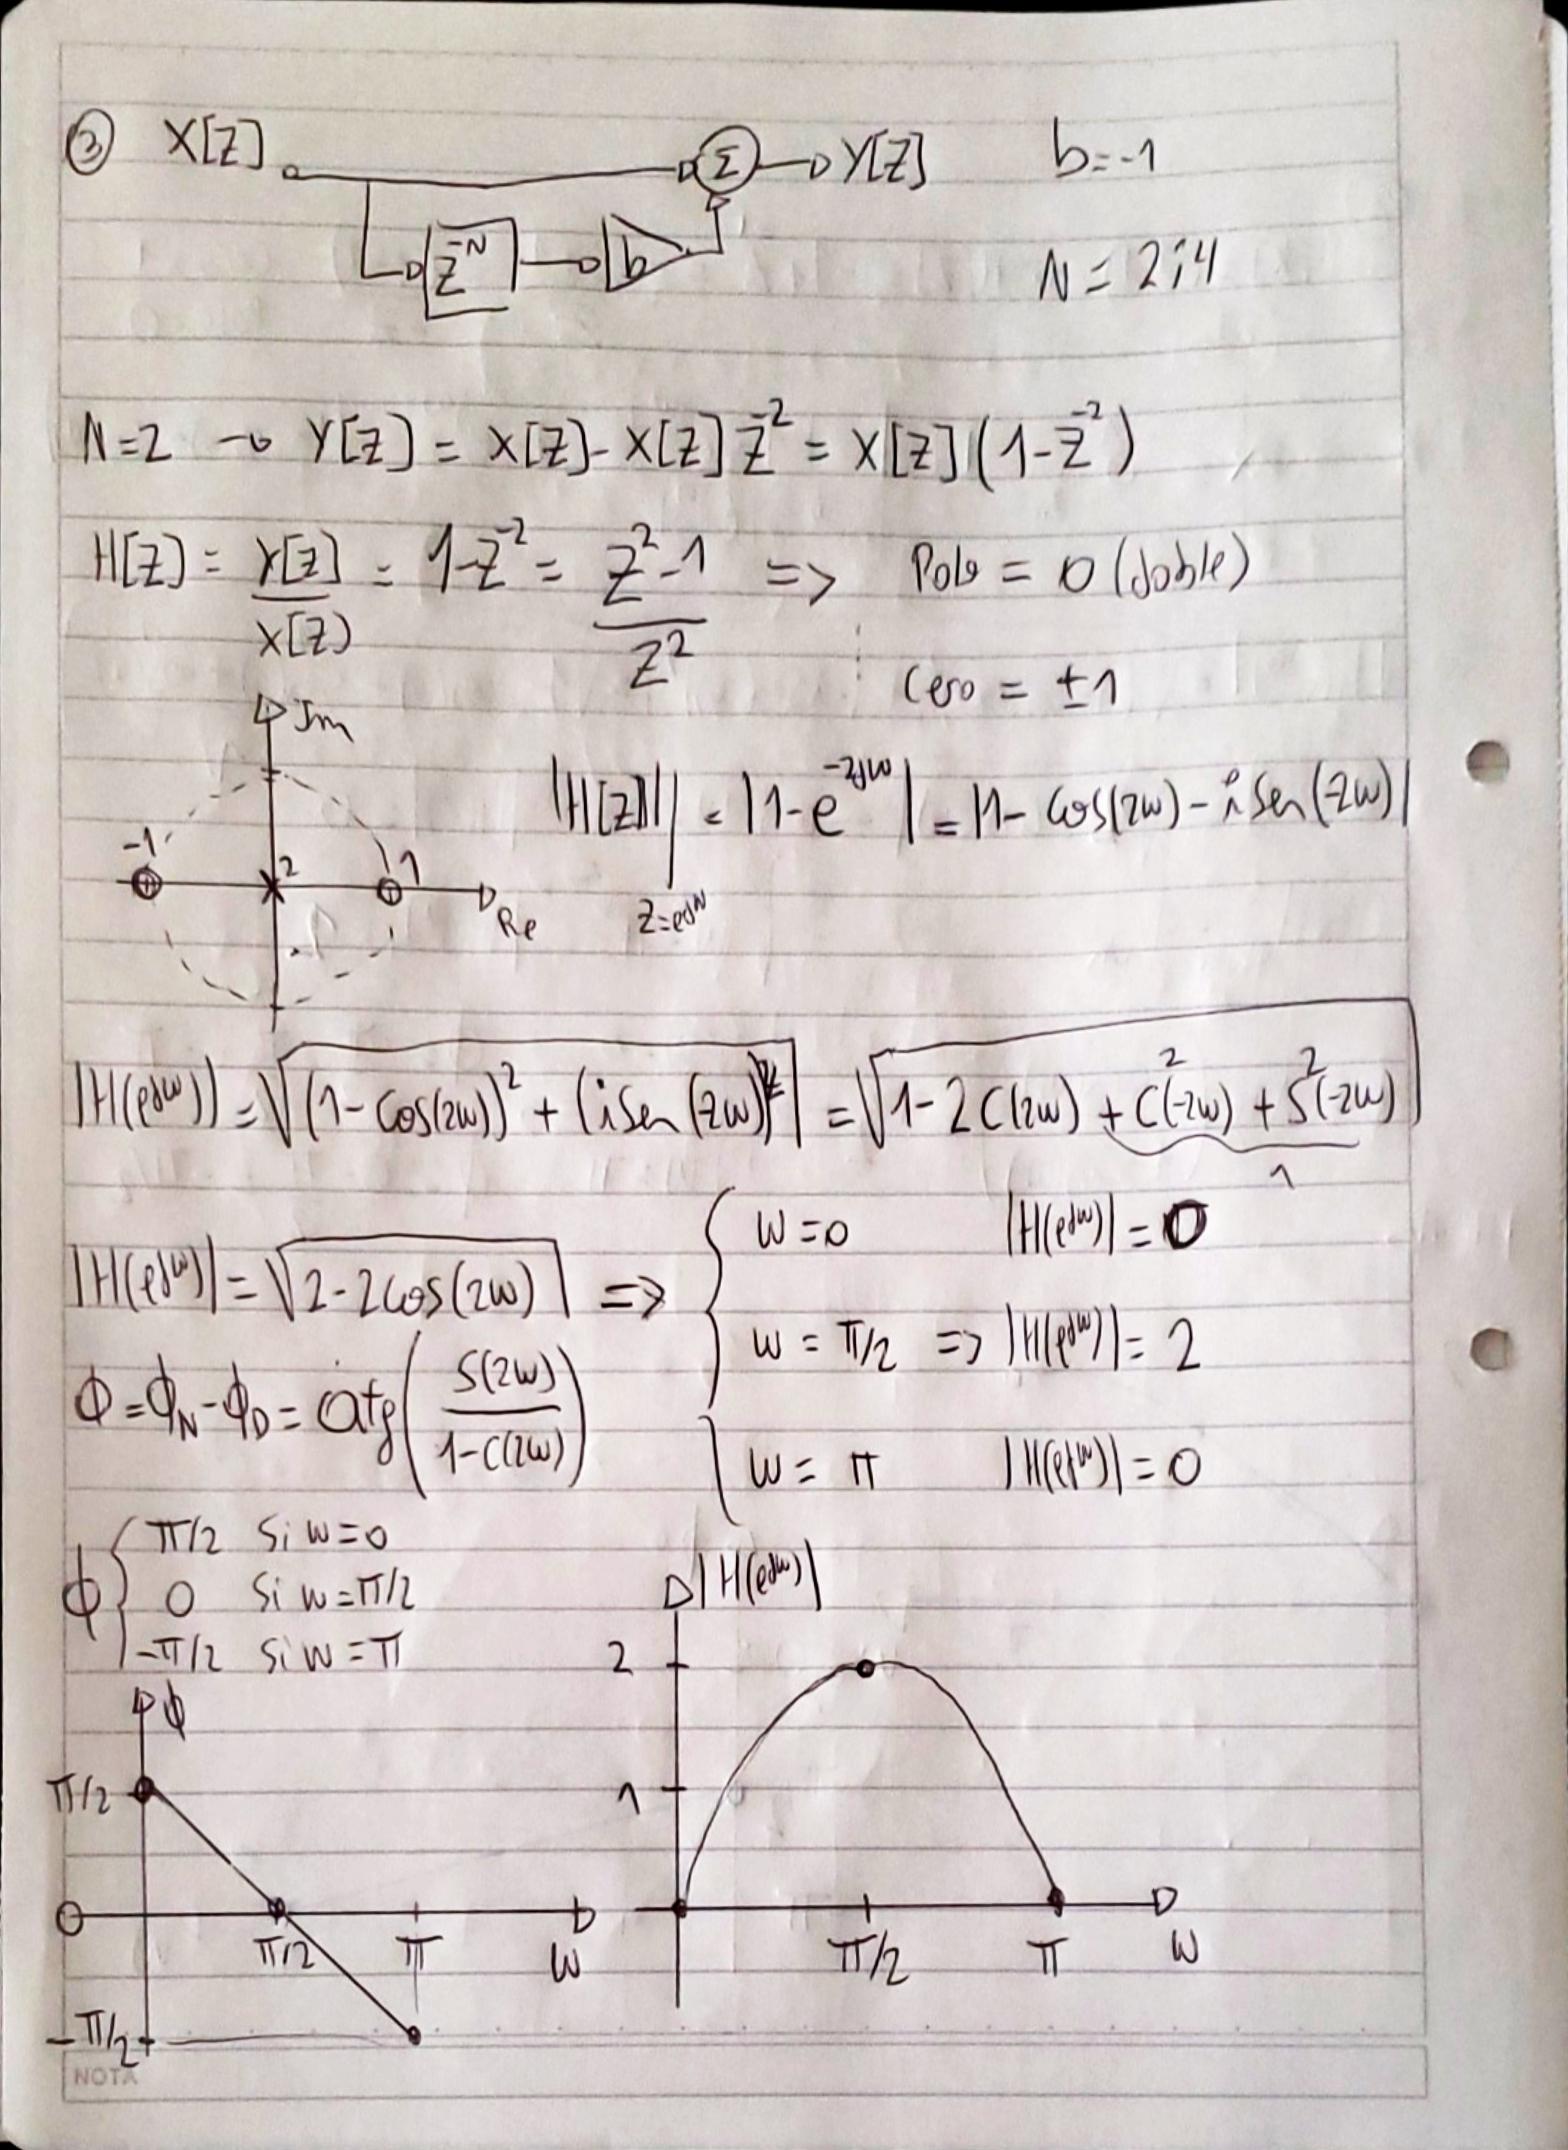 ③ X[Z] Σ Y[Z] b=-1
z^-N b N = 2;4
N=2 → Y[Z] = X[Z]-X[Z]z^-2 = X[Z](1-z^-2)
H[Z] = Y[Z]/X[Z] = 1-z^-2 = (z^2-1)/z^2 => Polo = 0 (doble)
Cero = ±1
Im
-1 2 1 Re
|H[Z]|| z=e^jw = |1-e^-2jw| = |1-cos(2w)-i sen(-2w)|
|H(e^jw)| = √((1-cos(2w))^2 + (i sen(-2w))^2) = √(1-2C(2w) + C^2(-2w) + S^2(-2w))
1
|H(e^jw)| = √(2-2cos(2w)) => { w=0 |H(e^jw)| = 0
w = π/2 => |H(e^jw)| = 2
w = π |H(e^jw)| = 0
ϕ = ϕN-ϕD = atg(S(2w)/(1-C(2w)))
ϕ { π/2 si w=0
0 si w=π/2
-π/2 si w=π
ϕ
π/2
0 π/2 π w
-π/2
|H(e^jw)|
2
1
π/2 π w
NOTA